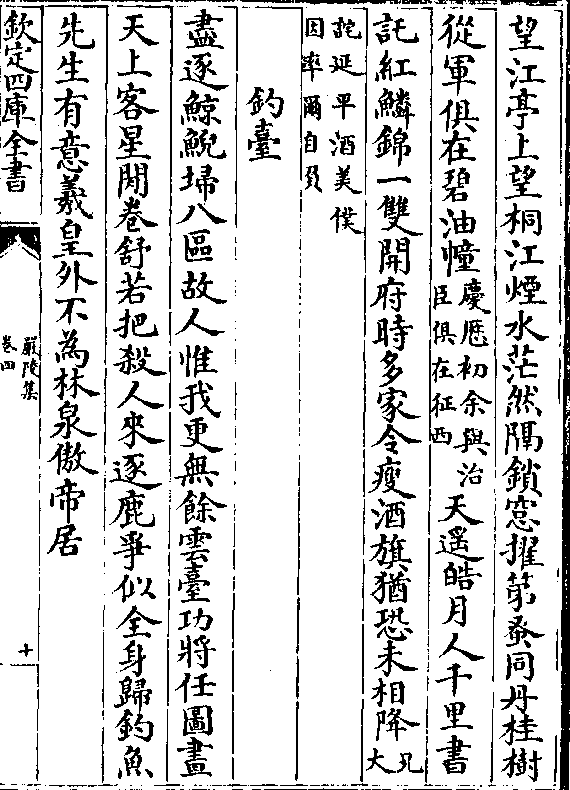 望江亭上望桐江煙水茫然隔鎖窓擢第蚤同丹桂樹
從軍俱在碧油幢慶厯初余與治臣俱在征西天遥皓月人千里書
託紅鱗錦一雙開府時多家令瘦酒旗猶恐未相降兄大
詫延平酒美僕因率爾自
釣臺
盡逐鯨鯢埽八區故人惟我更無餘雲臺功將任圖畫
天上客星閒卷舒若把殺人來逐鹿爭似全身歸釣魚
先生有意羲皇外不為林泉傲帝居
欽定四庫全書
嚴陵集
卷四
十